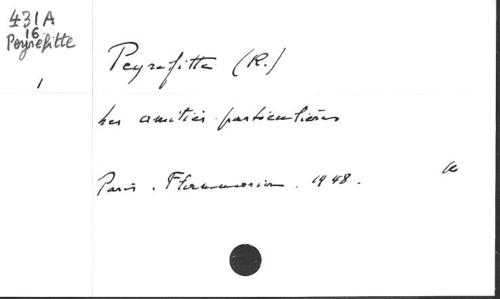 431A
16
Peyrefitte
1
Peyrefitte (R.)
Les amitiés particulières
Paris. Flammarion. 1948.